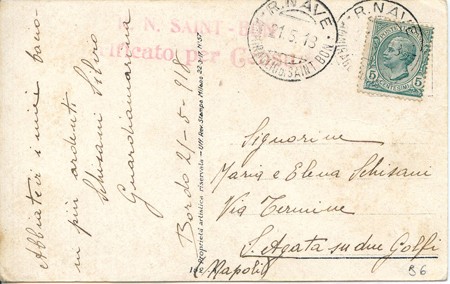 R. N. SAINT-BON
Verificato per Censura
R. NAVE
21.5.18
SAINT BON
R. NAVE
5
CENTESIMI
5
Abbiatevi i miei baci
in più ardenti
Schisani Silvio
Guardiamarina
Bordo 21-5-918
Proprietà artistica riservata - Uff. Rev. Stampa Milano 22-5-17 N. 57
Signorine
Maria e Elena Schisani
Via Termine
S. Agata su due Golfi
(Napoli)
36